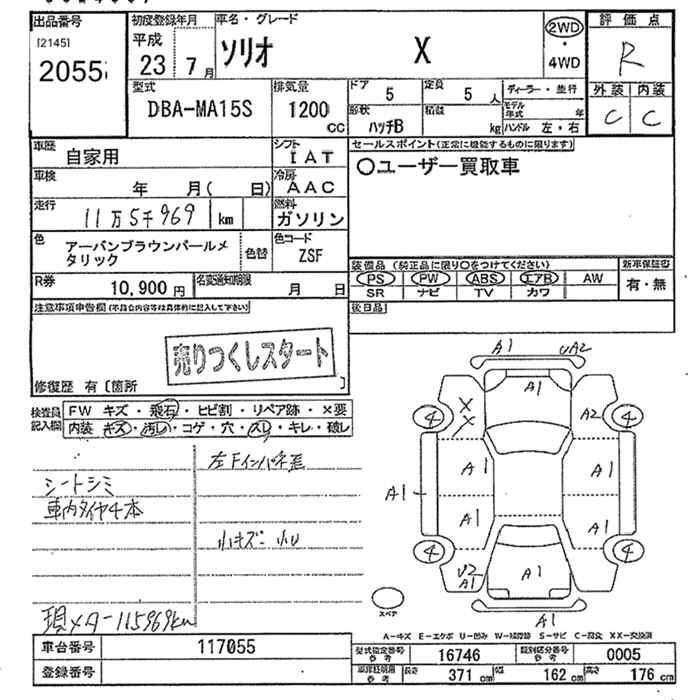 出品番号
[2145]
2055
初度登録年月
平成
23年 7月
車名・グレード
ソリオ X
2WD
・
4WD
評価点
R
型式
DBA-MA15S
排気量
1200
CC
ドア
5
定員
5 人
形状
ハッチB
積載
kg
ディーラー・並行
モデル年式 年
ハンドル 左・右
外装 内装
C C
車歴
自家用
シフト
IAT
セールスポイント(正常に機能するものに限ります)
〇ユーザー買取車
車検
年 月( 日)
冷房
AAC
走行
11万5千969 km
燃料
ガソリン
色
アーバンブラウンパールメ
タリック
色替
色コード
ZSF
装備品(純正品に限り〇をつけてください)
新車保証書
PS PW ABS エアB AW
SR ナビ TV カワ
有・無
R券
10,900 円
名変通知期限
月 日
注意事項申告欄(不具合内容等は具体的に記入して下さい)
後日品
売りつくしスタート
修復歴 有〔箇所 〕
検査員
記入欄
FW キズ・飛石・ヒビ割・リペア跡・×要
内装 キズ・汚レ・コゲ・穴・スレ・キレ・破レ
左Fインパネ差
シートシミ
車内タイヤ4本
小キズ・小U
現メター115969km
A1 UA2
A1
4 4
X
X
A2
A1 A1
A1
A1 A1
4 4
U2
A1
A1
A1
スペア
A-キズ E-エクボ U-凹み W-補修跡 S-サビ C-腐食 XX-交換済
車台番号
117055
登録番号
型式指定番号
参考
16746
類別区分番号
参考
0005
車庫証明用
参考
長さ 371 cm
幅 162 cm
高さ 176 cm